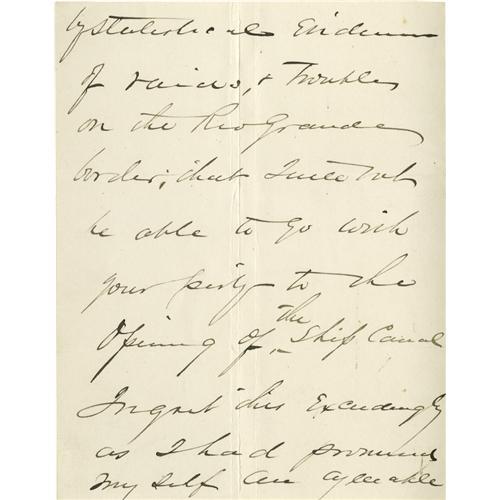 by Statistical Evidence
of raids, & Troubles
on the Rio Grande
border, that I will not
be able to go with
your party to the
Opening of the Ship Canal
I regret this Exceedingly
as I had promised
myself an agreeable